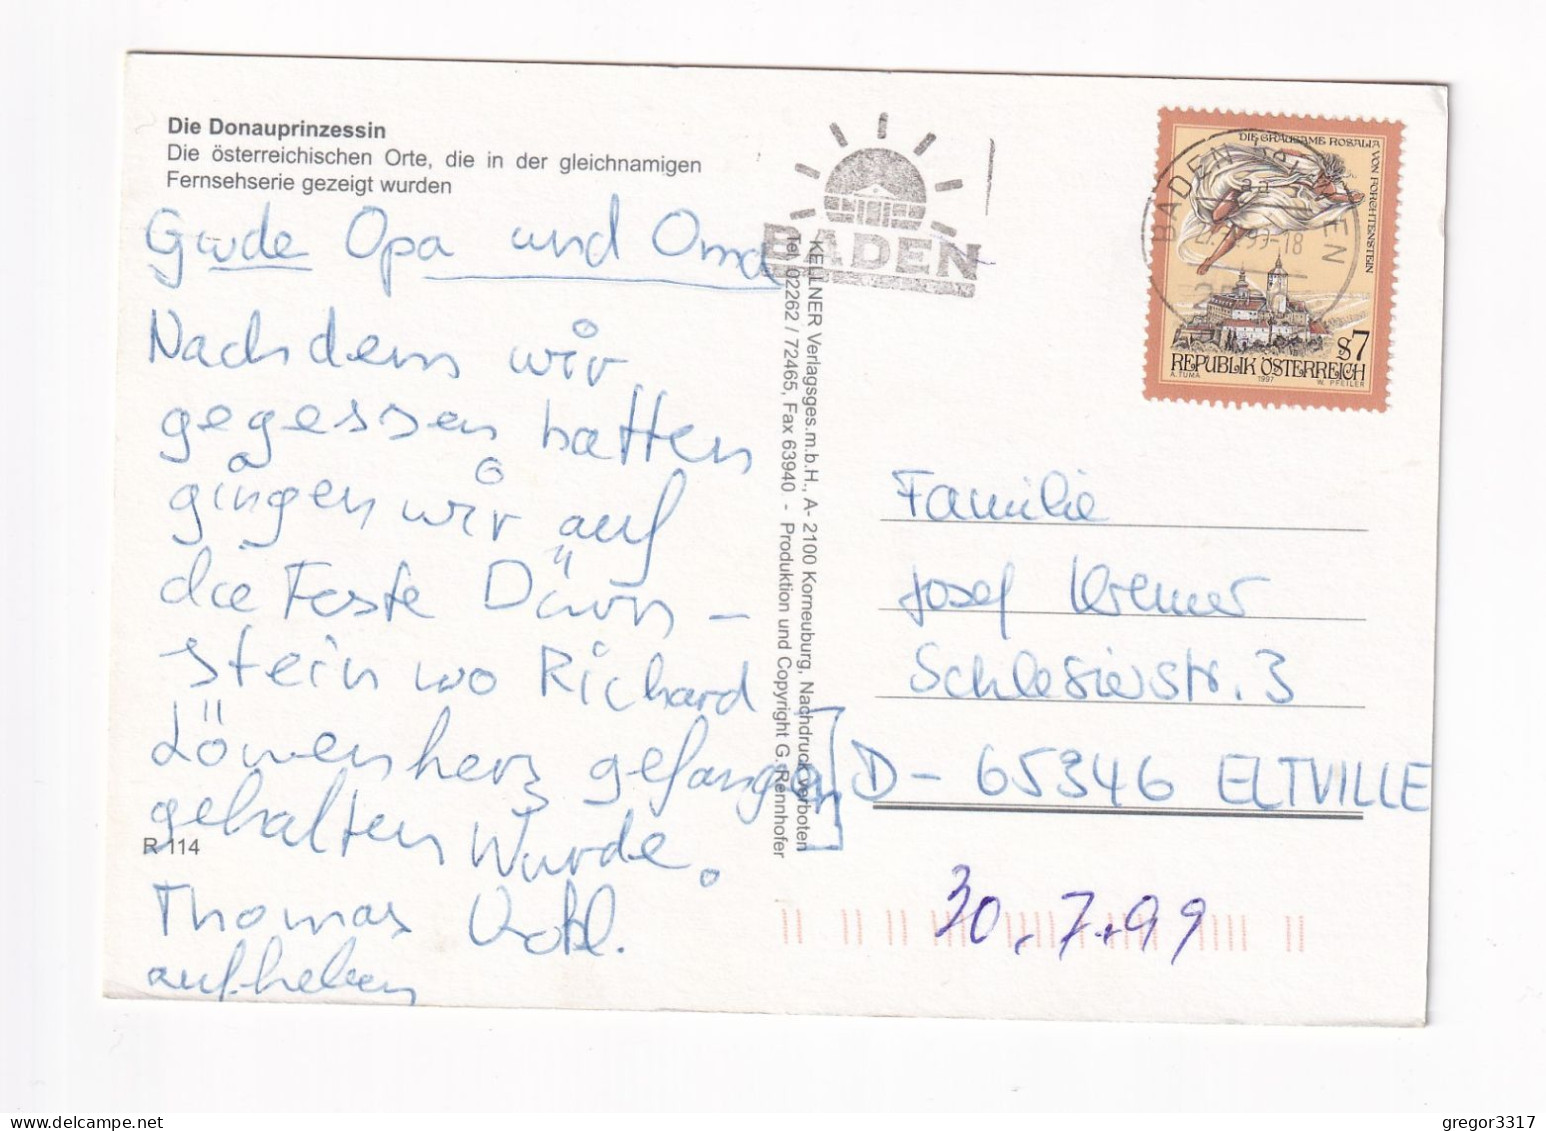 Die Donauprinzessin
Die österreichischen Orte, die in der gleichnamigen
Fernsehserie gezeigt wurden
Gude Opa und Oma
Nachdem wir
gegessen hatten
gingen wir auf
die Feste Dürn-
stein wo Richard
Löwenherz gefangen
gehalten wurde.
Thomas
aufheben
R 114
KELLNER Verlagsges.m.b.H., A- 2100 Korneuburg, Nachdruck verboten
Tel. 02262 / 72465, Fax 63940 - Produktion und Copyright G. Rennhofer
BADEN
BADEN BEI WIEN
DIE GRAUSAME ROSALIA
VON FORCHTENSTEIN
S7
REPUBLIK ÖSTERREICH
A. TUMA 1997 W. PFEILER
Familie
Josef Kremer
Schlesierstr. 3
D - 65346 ELTVILLE
30.7.99
gregor3317